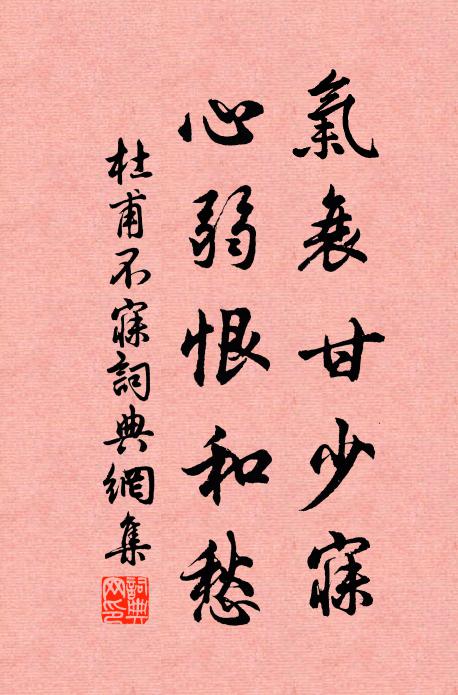 氣衰甘少寐
心弱恨和愁
杜甫不寐詞典網集
詞典网印